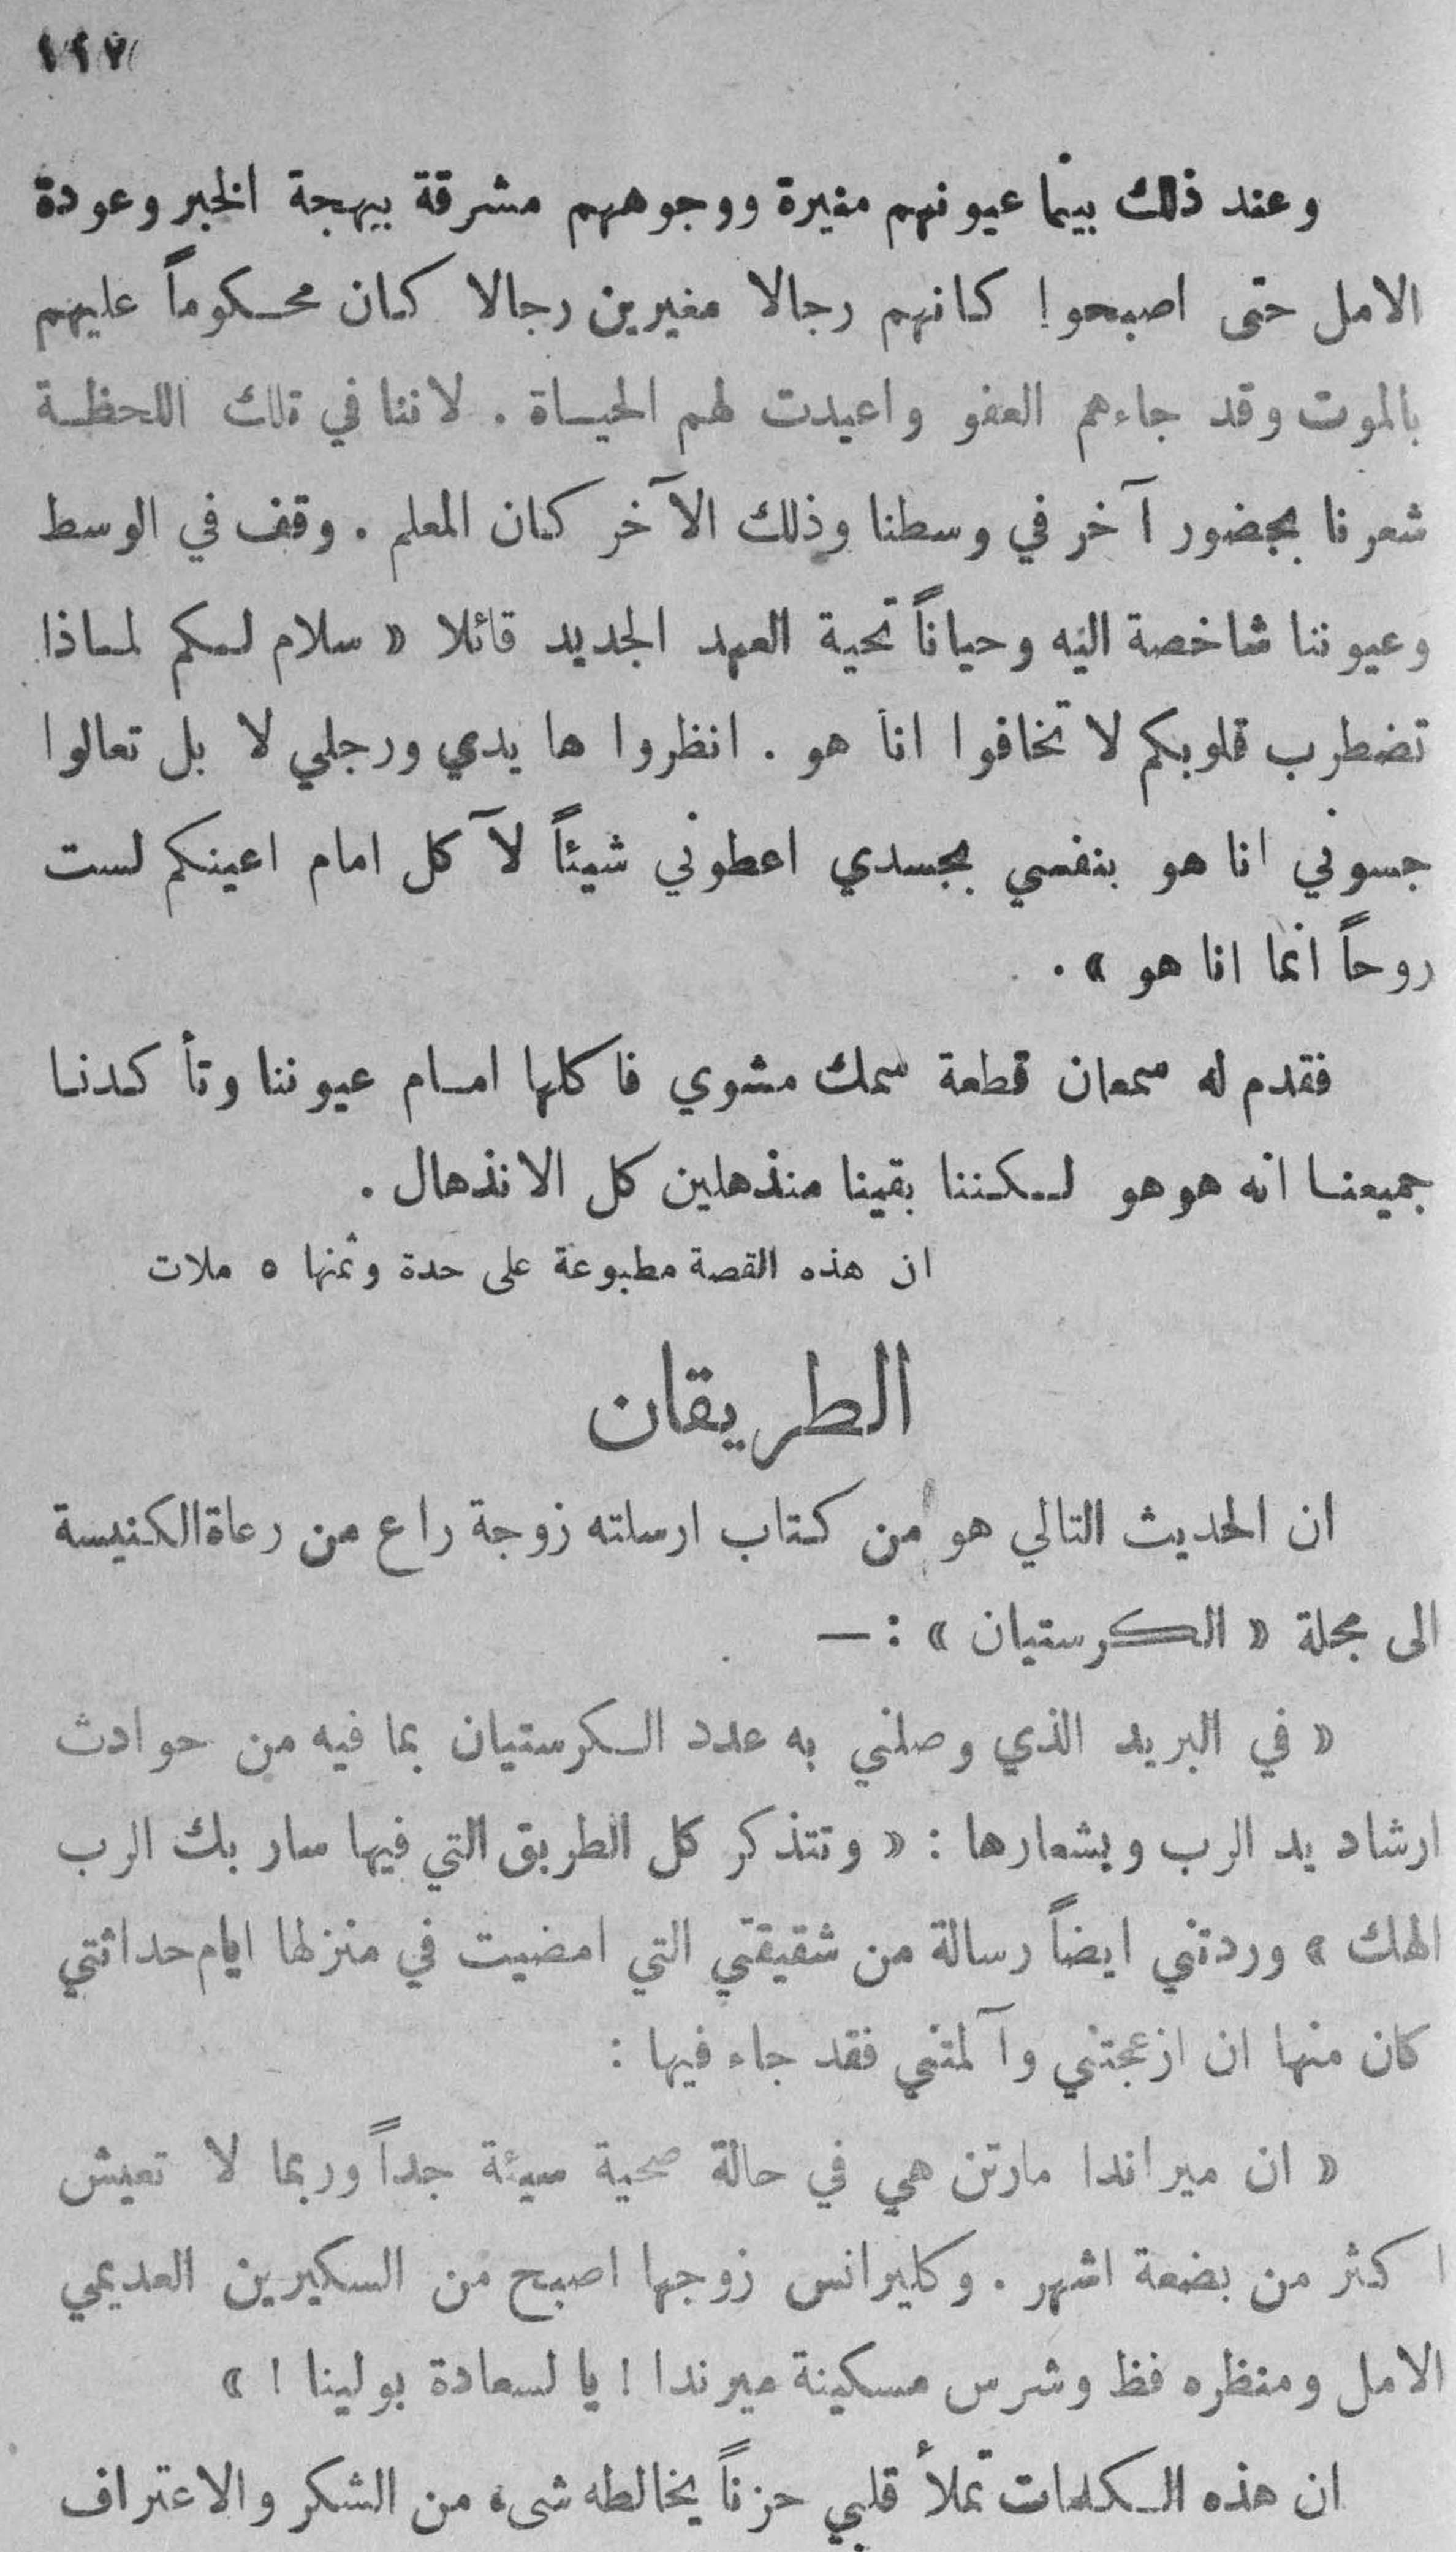 ١١٧
وعند ذلك بينما عيونهم منيرة ووجوههم مشرقة ببهجة الخبر وعودة
الامل حتى اصبحوا كانهم رجالا مغيرين رجالا كان محكوماً عليهم
بالموت وقد جاءهم العفو واعيدت لهم الحياة . لاننا في تلك اللحظة
شعرنا بحضور آخر في وسطنا وذلك الآخر كان المعلم . وقف في الوسط
وعيوننا شاخصة اليه وحياناً تحية العهد الجديد قائلا « سلام لكم لماذا
تضطرب قلوبكم لا تخافوا انا هو . انظروا ها يدي ورجلي لا بل تعالوا
جسوني انا هو بنفسي بجسدي اعطوني شيئاً لآكل امام اعينكم لست
روحاً انما انا هو » .
فقدم له سمعان قطعة سمك مشوي فاكلها امام عيوننا وتأكدنا
جميعنا انه هو هو لكننا بقينا منذهلين كل الانذهال .
ان هذه القصة مطبوعة على حدة وثمنها ٥ ملات
الطريقان
ان الحديث التالي هو من كتاب ارسلته زوجة راع من رعاة الكنيسة
الى مجلة « الكرستيان » : —
« في البريد الذي وصلني به عدد الكرستيان بما فيه من حوادث
ارشاد يد الرب وبشعارها : « وتتذكر كل الطريق التي فيها سار بك الرب
الهك » وردتني ايضاً رسالة من شقيقتي التي امضيت في منزلها ايام حداثتي
كان منها ان ازعجتني وآلمتني فقد جاء فيها :
« ان ميراندا مارتن هي في حالة صحية سيئة جداً وربما لا تعيش
اكثر من بضعة اشهر . وكليرانس زوجها اصبح من السكيرين العديمي
الامل ومنظره فظ وشرس مسكينة ميرندا ! يا لسعادة بولينا ! »
ان هذه الكلمات تملأ قلبي حزناً يخالطه شىء من الشكر والاعتراف